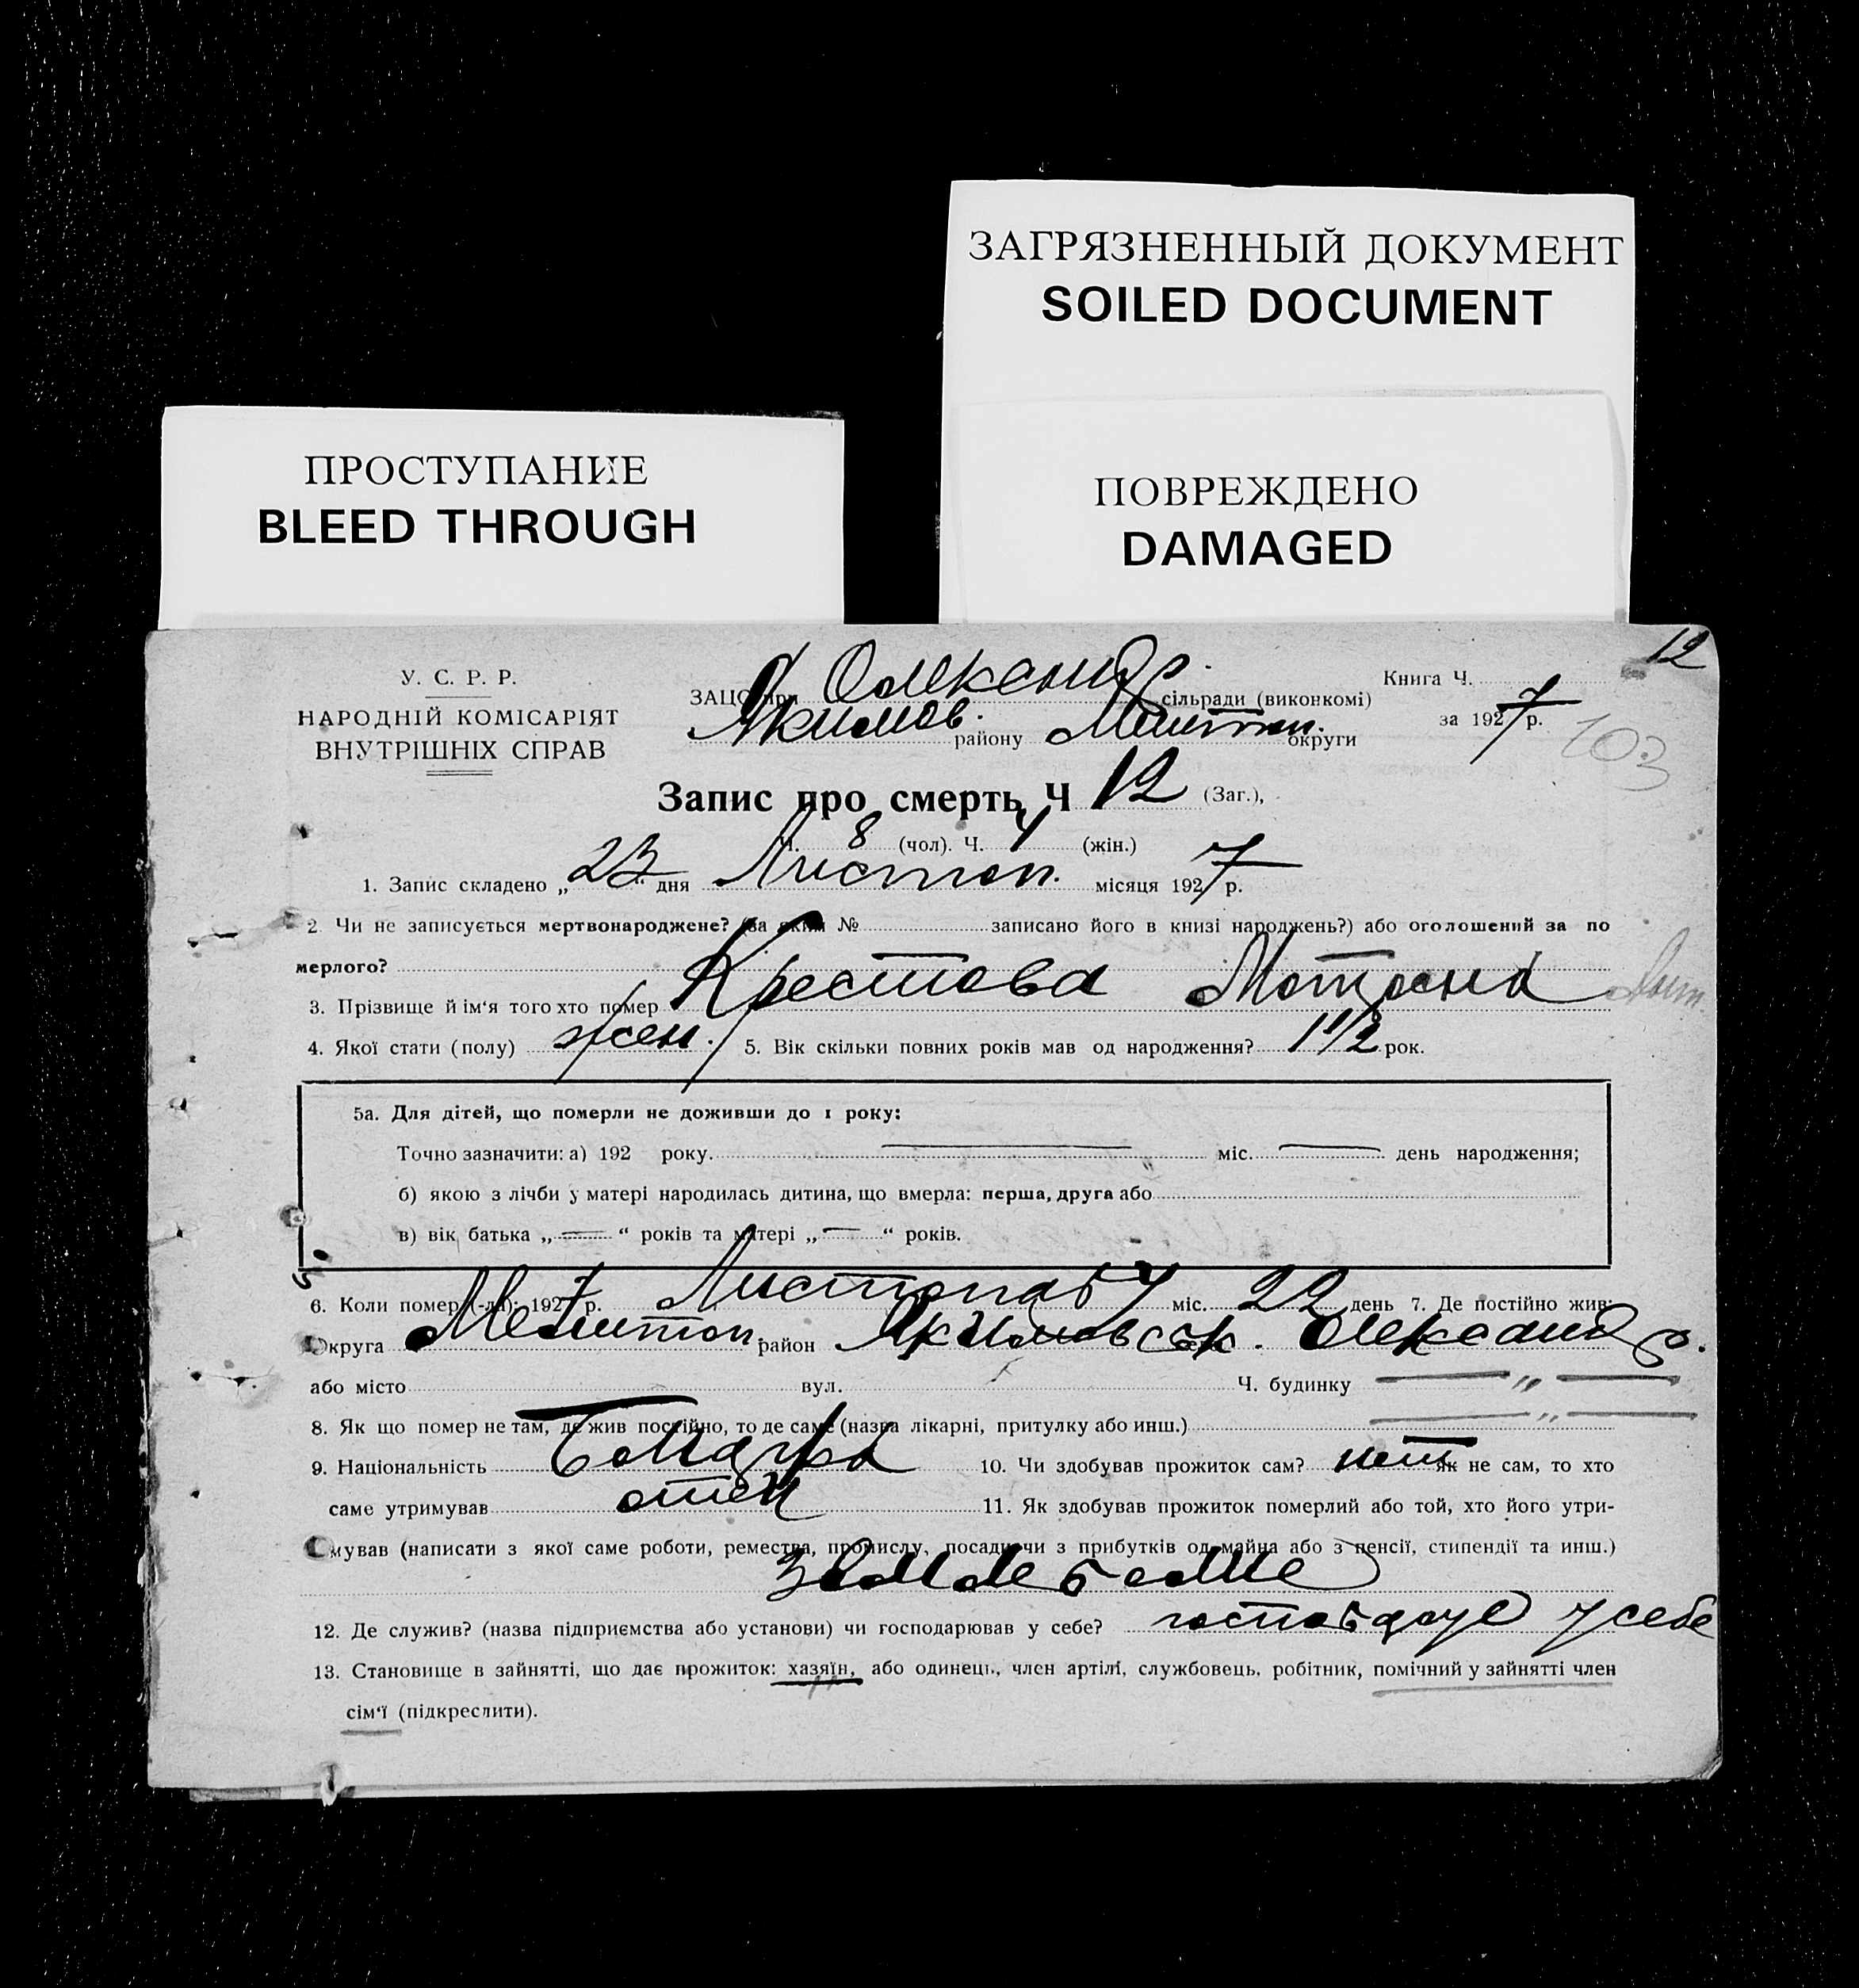 ЗАГРЯЗНЕННЫЙ ДОКУМЕНТ
SOILED DOCUMENT
ПРОСТУПАНИЕ
BLEED THROUGH
ПОВРЕЖДЕНО
DAMAGED
12
У. С. Р. Р.
НАРОДНІЙ КОМІСАРІЯТ
ВНУТРІШНІХ СПРАВ
ЗАЦС при Олександр. сільради (виконкомі)
Якимов. району Мелітоп. округи
Книга Ч.
за 1927 р.
103
Запис про смерть Ч 12 (Заг.),
Ч. 8 (чол). Ч. 4 (жін.)
1. Запис складено „23“ дня Листоп. місяця 1927 р.
2. Чи не записується мертвонароджене? (за яким № записано його в книзі народжень?) або оголошений за по
мерлого?
3. Прізвище й ім‘я того хто помер Крестова Мотрона
4. Якої стати (полу) жен. 5. Вік скільки повних років мав од народження? 1 1/2 рок.
5а. Для дітей, що померли не доживши до 1 року:
Точно зазначити: а) 192 року. міс. день народження;
б) якою з лічби у матері народилась дитина, що вмерла: перша, друга або
в) вік батька „ “ років та матері „ “ років.
6. Коли помер (-ла): 1927 р. Листопаду міс. 22 день 7. Де постійно жив:
Округа Мелитоп. район Якимовськ. Олександр.
або місто вул. Ч. будинку — „ —
8. Як що помер не там, де жив постійно, то де саме (назва лікарні, притулку або инш.) — „ —
9. Національність Болгарка 10. Чи здобував прожиток сам? нет як не сам, то хто
саме утримував отец 11. Як здобував прожиток померлий або той, хто його утри-
мував (написати з якої саме роботи, ремества, промислу, посади чи з прибутків од майна або з пенсії, стипендії та инш.)
12. Де служив? (назва підприємства або установи) чи господарював у себе? у себе
13. Становище в зайнятті, що дає прожиток: хазяїн, або одинець, член артілі, службовець, робітник, помічний у зайнятті член
сім‘ї (підкреслити).